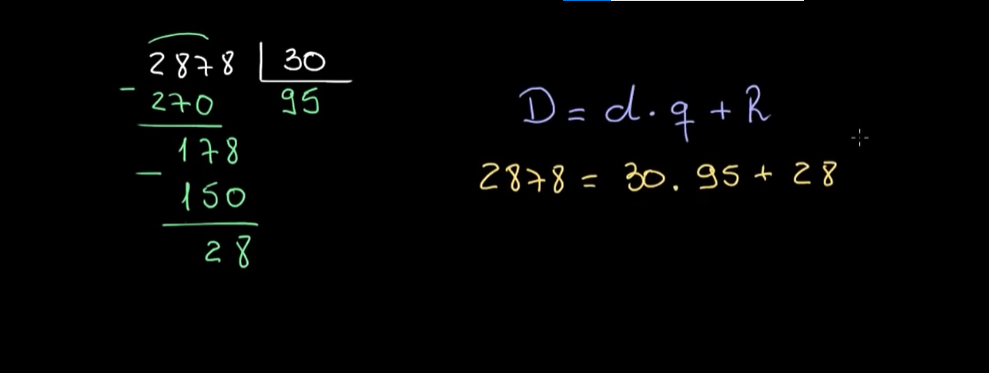 2878 30
- 270 95
178
- 150
28
D = d . q + R
2878 = 30 . 95 + 28